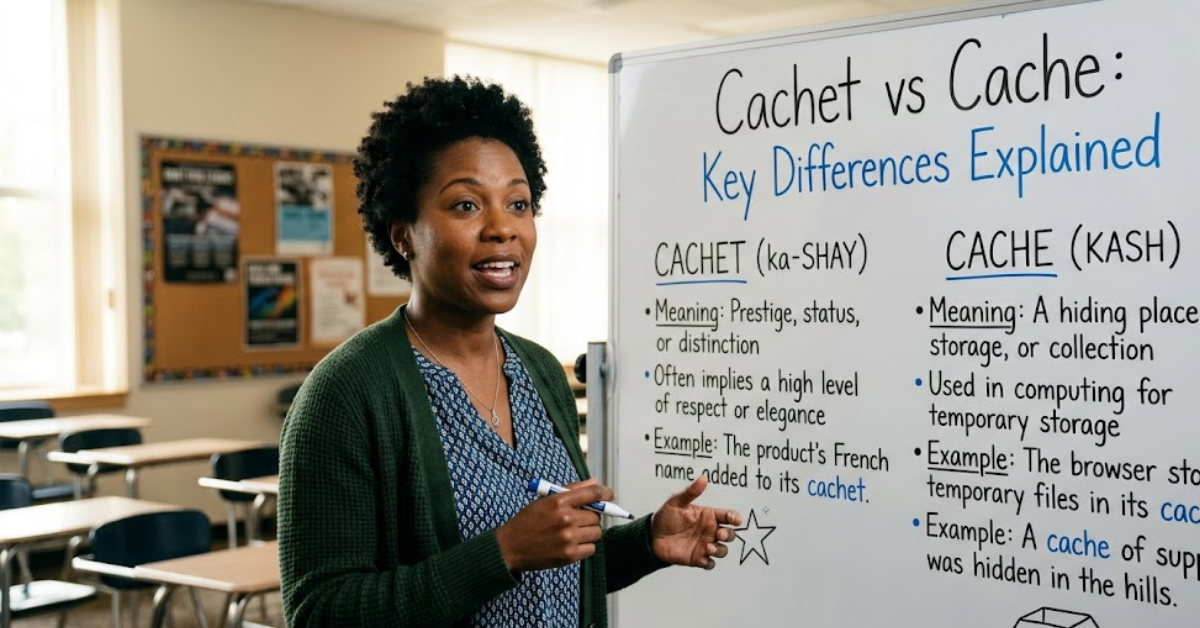 Cachet vs Cache:
Key Differences Explained
CACHET (ka-SHAY)
• Meaning: Prestige, status,
or distinction
• Often implies a high level
of respect or elegance
• Example: The product's French
name added to its cachet.
CACHE (KASH)
• Meaning: A hiding place
storage, or collection
• Used in computing for
temporary storage
• Example: The browser sto
temporary files in its cac
• Example: A cache of supp
was hidden in the hills.